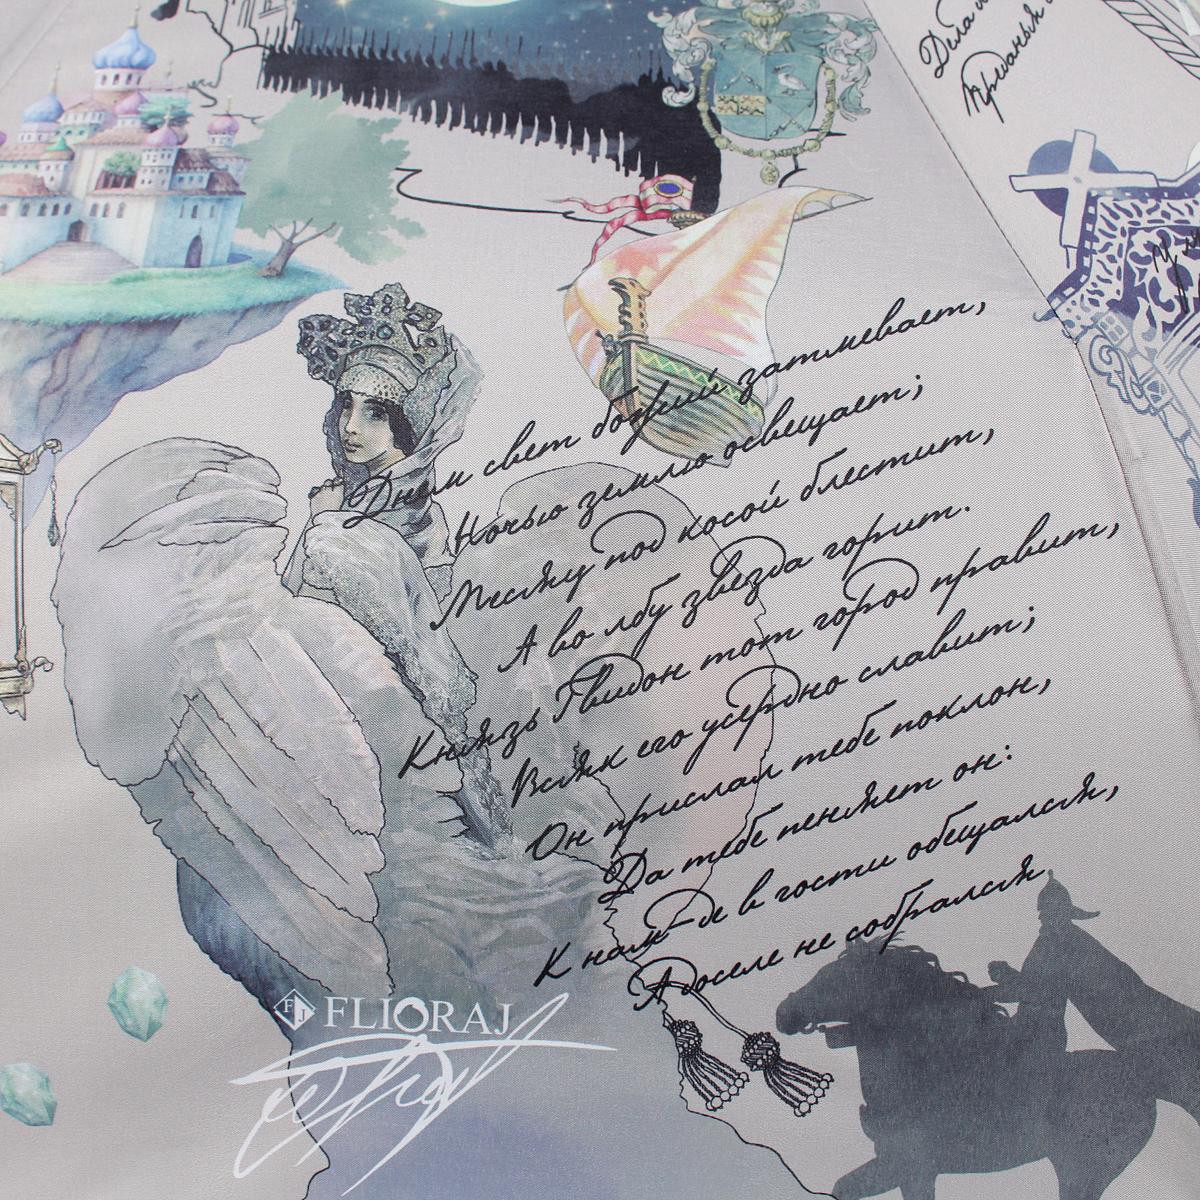 Дела и
Днём свет божий затмевает,
Ночью землю освещает;
Месяц под косой блестит,
А во лбу звезда горит.
Князь Гвидон тот город правит,
Всяк его усердно славит;
Он прислал тебе поклон,
Да тебе пеняет он:
К нам-де в гости обещался,
А доселе не собрался
FJ FLIORAJ